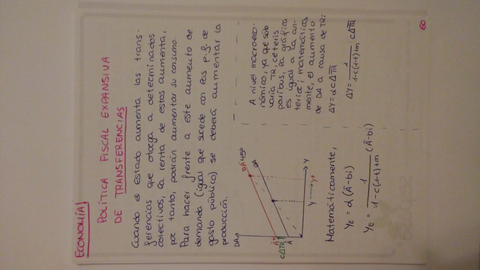 ECONOMÍA
POLÍTICA FISCAL EXPANSIVA
DE TRANSFERENCIAS
Cuando el estado aumenta las trans-
ferencias que otorga a determinados
colectivos, la renta de estos aumenta,
por tanto, podrán aumentar su consumo.
Para hacer frente a este aumento de
demanda (igual que sucede con las p.f. de
gasto público) se deberá aumentar la
producción.
DA
45º
DA'
DA
Ā'
cΔTR
Ā
Y
Y
A nivel macroeco-
nómico, ya que sólo
varía TR, ceteris
paribus, la gráfica
es igual a la an-
terior; matemática-
mente, el aumento
de DA a causa de TR:
ΔY = α c Δ T̅R̅
ΔY = 1 / 1-c(1-t)+m c Δ T̅R̅
Matemáticamente,
YE = α (Ā-bi)
YE = 1 / 1-c(1-t)+m (Ā-bi)
60